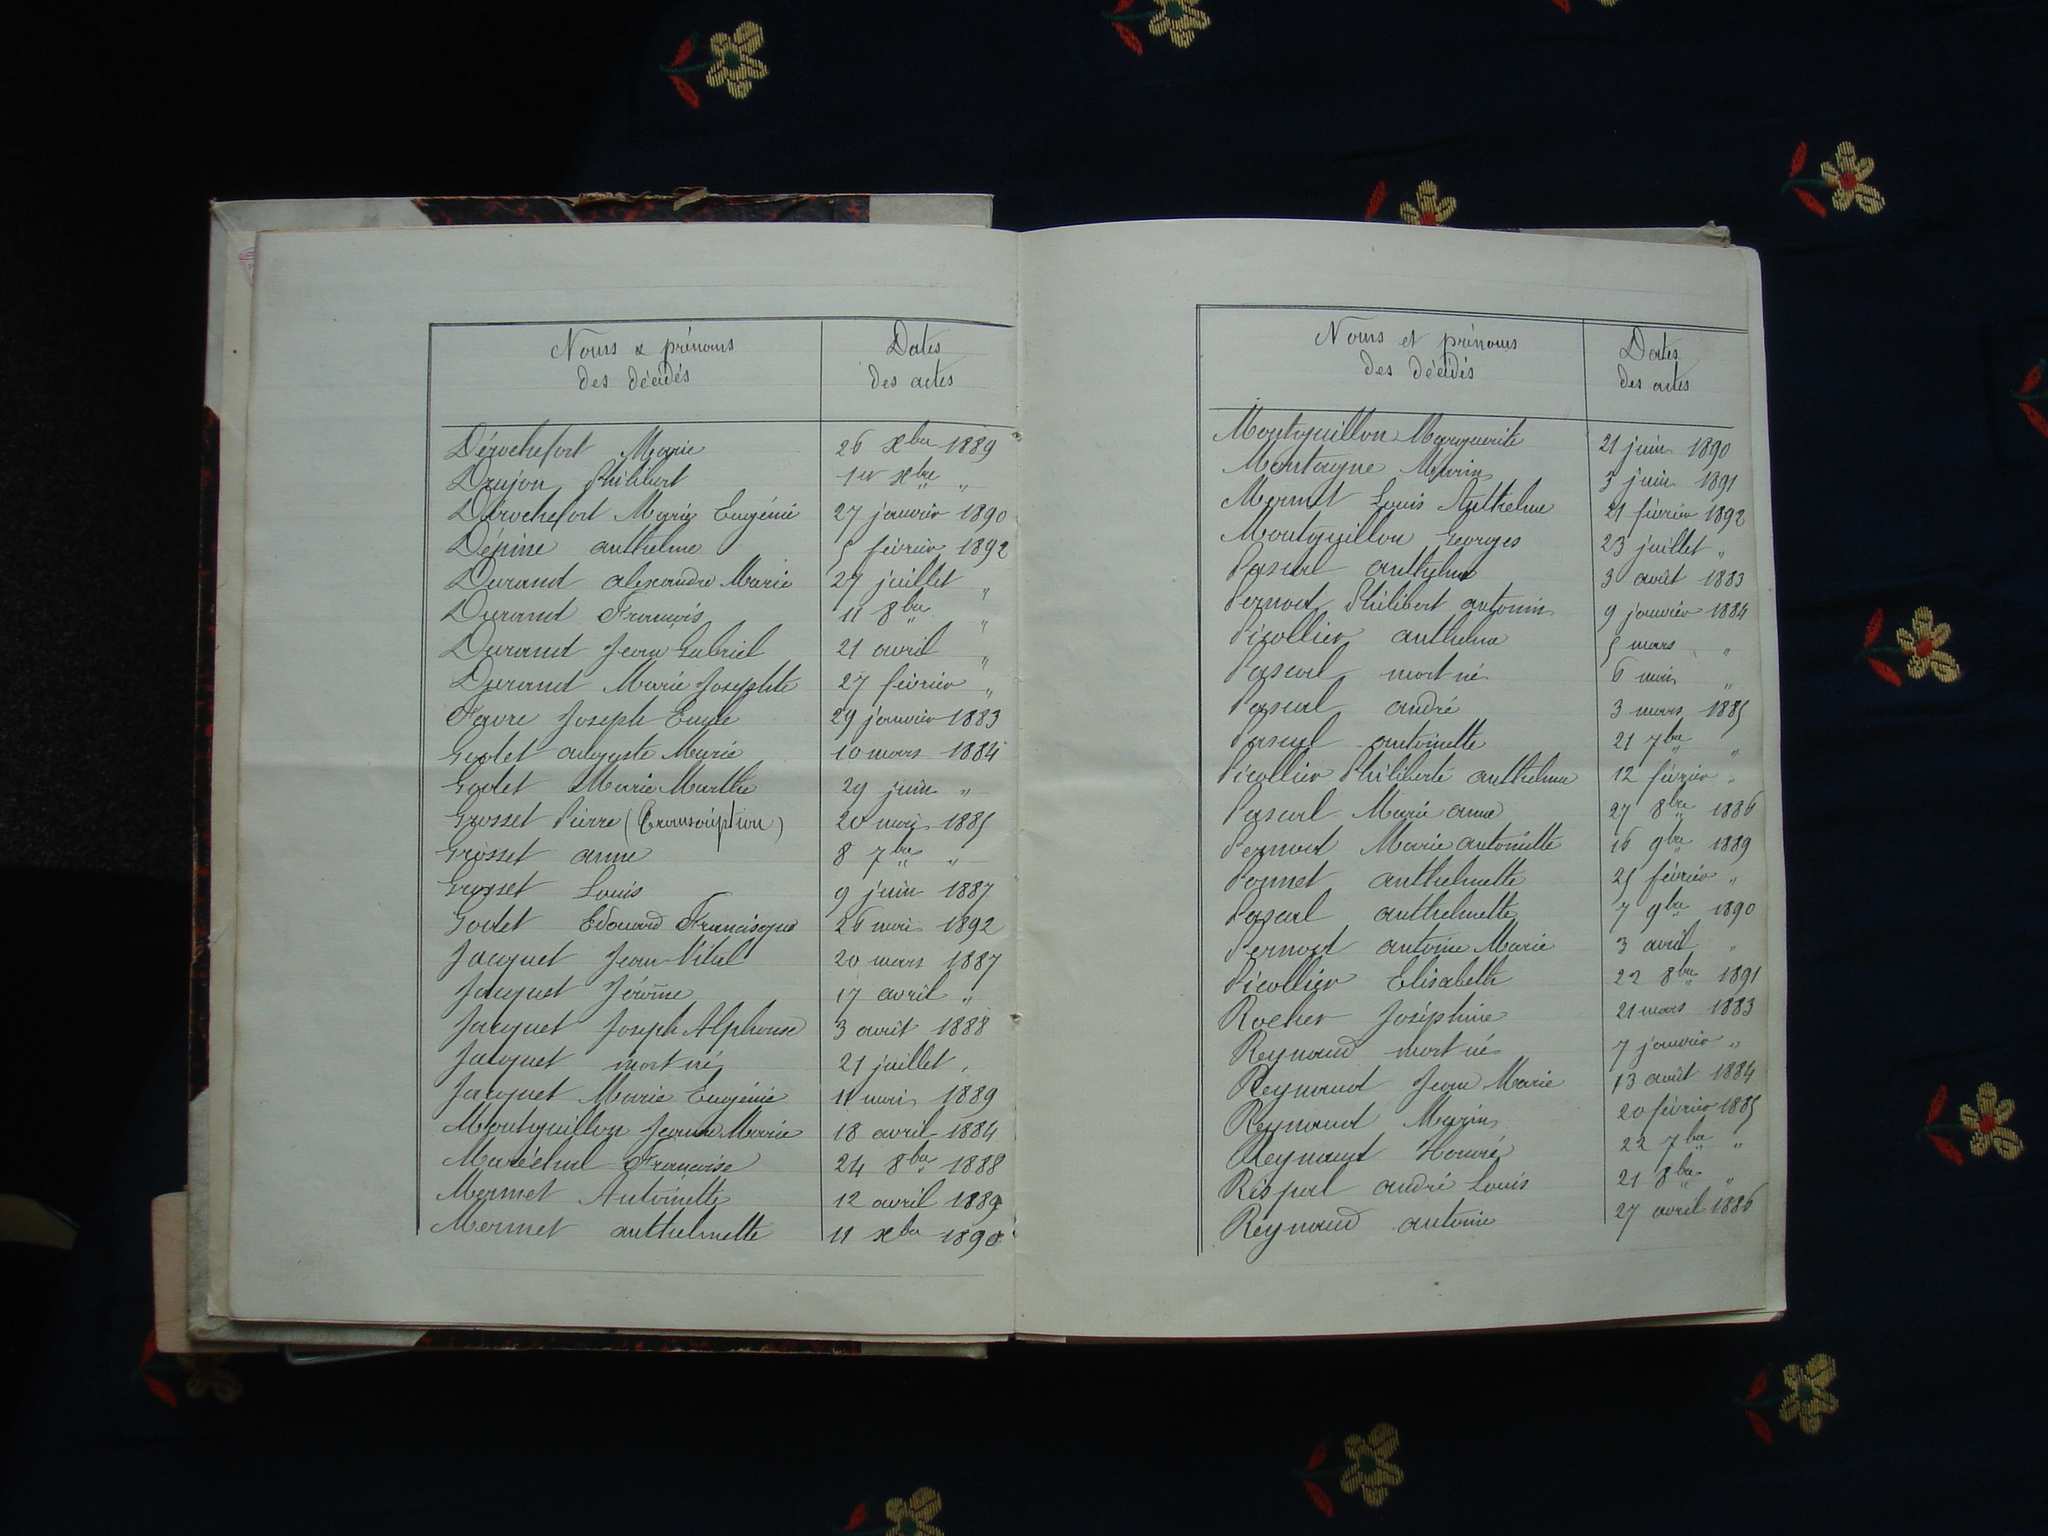 Noms & prénoms
des décédés
Dates
des actes
Dérochefort Marie 26 xbre 1889
Drujon Philibert 1er xbre "
Dérochefort Marie Eugénie 27 janvier 1890
Dépine anthelme 5 février 1892
Durand alexandre Marie 27 juillet "
Durand François 11 8bre "
Durand Jean Gabriel 21 avril "
Durand Marie Josephte 27 février "
Favre Joseph Emile 29 janvier 1883
Godet auguste Marie 10 mars 1884
Godet Marie Marthe 29 juin "
Grosset Pierre (Transcription) 20 mai 1885
Grosset anne 8 7bre "
Grosset Louis 9 juin 1887
Godet Edouard Francisque 26 mai 1892
Jacquet Jean Vital 20 mars 1887
Jacquet Jérôme 17 avril "
Jacquet Joseph Alphonse 3 avril 1888
Jacquet mort né 21 juillet "
Jacquet Marie Eugénie 11 mai 1889
Montquillon Jeanne Marie 18 avril 1884
Maréchal Françoise 24 8bre 1888
Mermet Antoinette 12 avril 1889
Mermet anthelmette 11 xbre 1890
Noms et prénoms
des décédés
Dates
des actes
Montquillon Marguerite 21 juin 1890
Montagne Marin 3 juin 1891
Mermet Louis Anthelme 21 février 1892
Montquillon Georges 23 juillet "
Pascal anthelme 3 août 1883
Pernod Philibert antonin 9 janvier 1884
Picollier anthelme 5 mars "
Pascal mort né 6 mai "
Pascal andré 3 mars 1885
Pascal antoinette 21 7bre "
Picollier Philiberte anthelme 12 février "
Pascal Marie anne 27 8bre 1886
Pernod Marie antoinette 16 9bre 1889
Ponnet anthelmette 25 février "
Pascal anthelmette 7 9bre 1890
Pernod antoine Marie 3 avril "
Picollier Elisabeth 22 8bre 1891
Rocher Joséphine 21 mars 1883
Reynaud mort né 7 janvier "
Reynaud Jean Marie 13 août 1884
Reynaud Marin 20 février 1885
Reynaud Honoré 22 7bre "
Rispal andré Louis 21 8bre "
Reynaud antoine 27 avril 1886